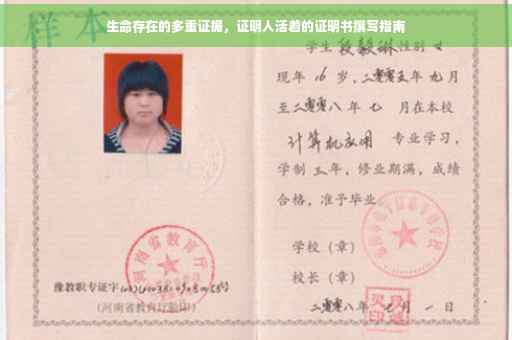 样本
生命存在的多重证据，证明人活着的证明书撰写指南
学生段毅琳性别女
现年16岁，二零零五年九月
至二零零八年七月在本校
计算机应用 专业学习，
学制三年，修业期满，成绩
合格，准予毕业
学校（章）
校长（章）
二零零八年 月一日
河南省教育厅
豫教职专证字
（河南省教育厅验印）